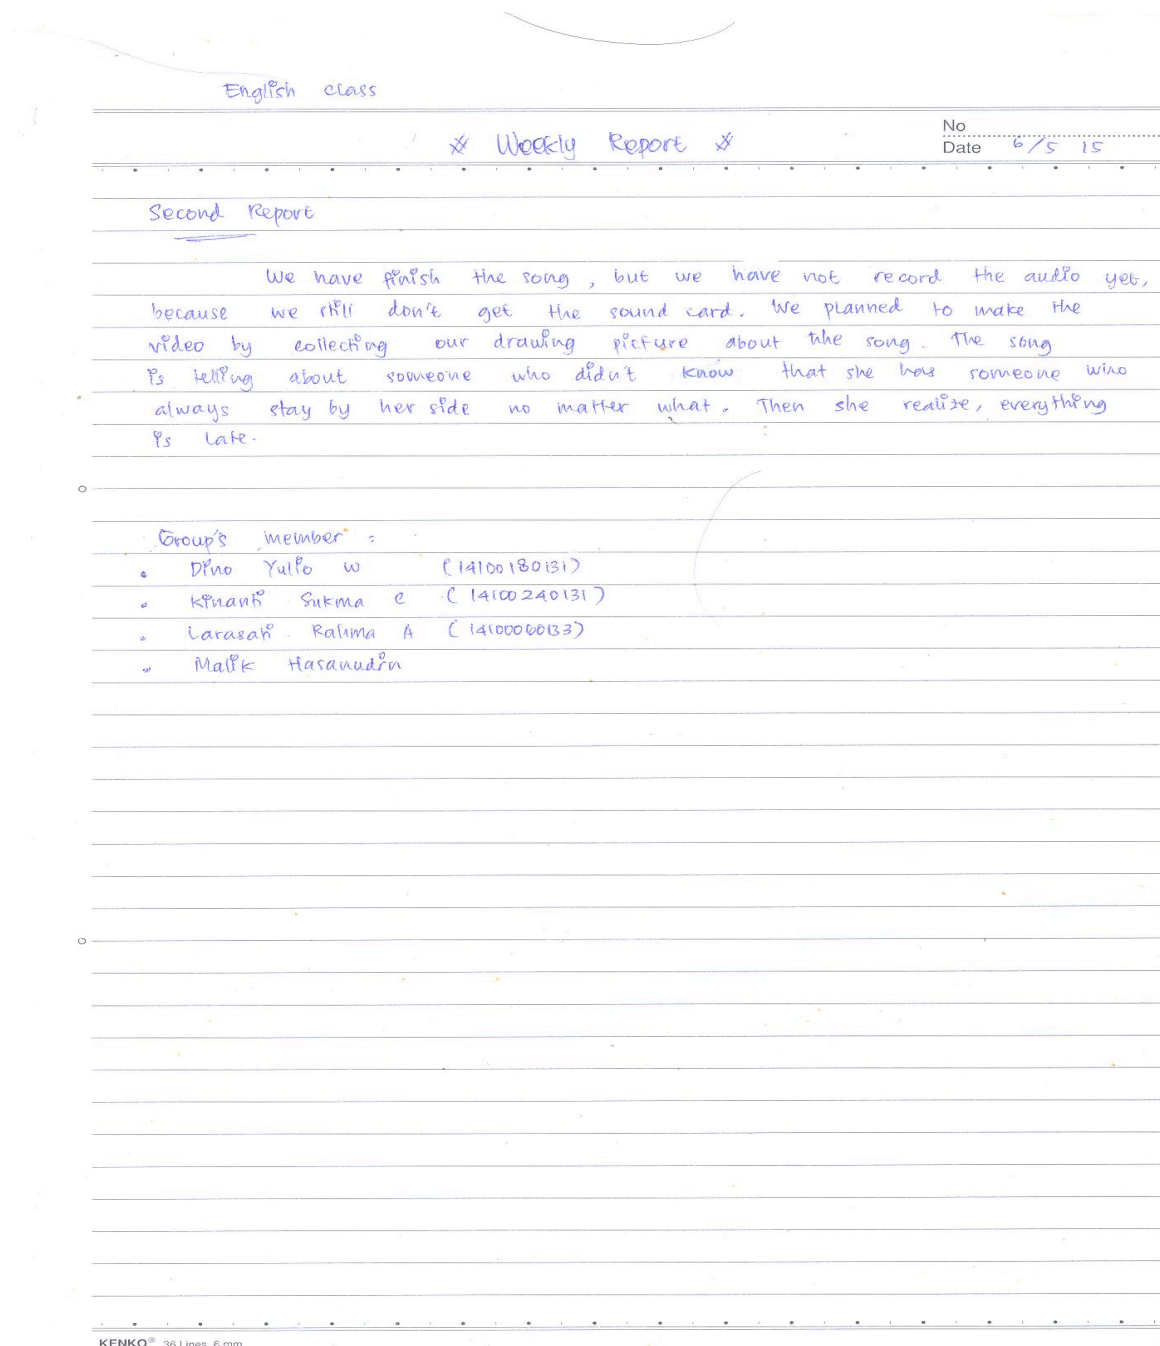 English class
No
Weekly Report
Date 6/5 15
Second Report
We have finish the song, but we have not record the audio yet,
because we still don't get the sound card. We planned to make the
video by collecting our drawing picture about the song. The song
is telling about someone who didn't know that she has someone who
always stay by her side no matter what. Then she realize, everything
is late.
Group's member :
• Dino Yulio W (14100180131)
• Kinanti Sukma C (14100240131)
• Larasati Rahma A (14100060133)
• Malik Hasanudin
KENKO® 36 Lines, 6 mm